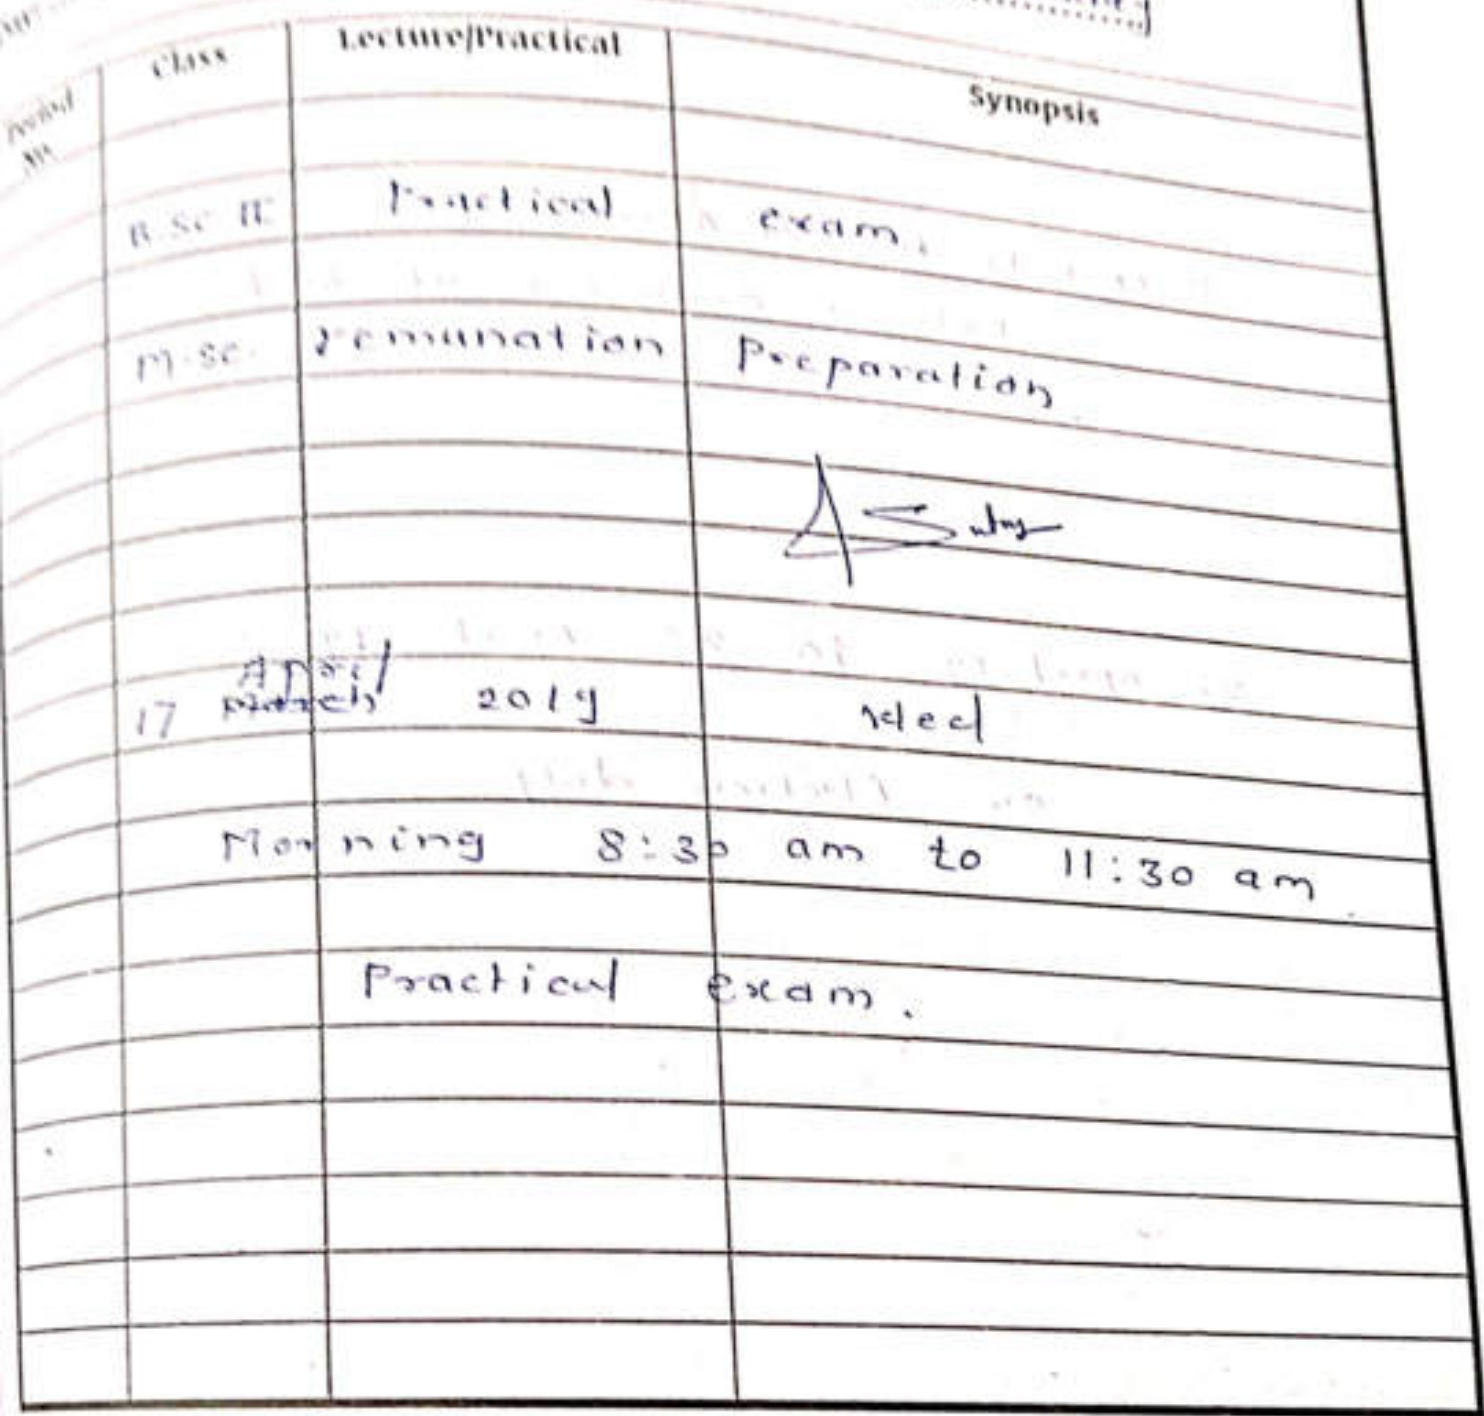 Period No. Class Lecture/Practical Synopsis
B.Sc III Practical exam.
M.Sc. remunation Preparation
17 April 2019 Wed
March
Morning 8:30 am to 11:30 am
Practical exam.